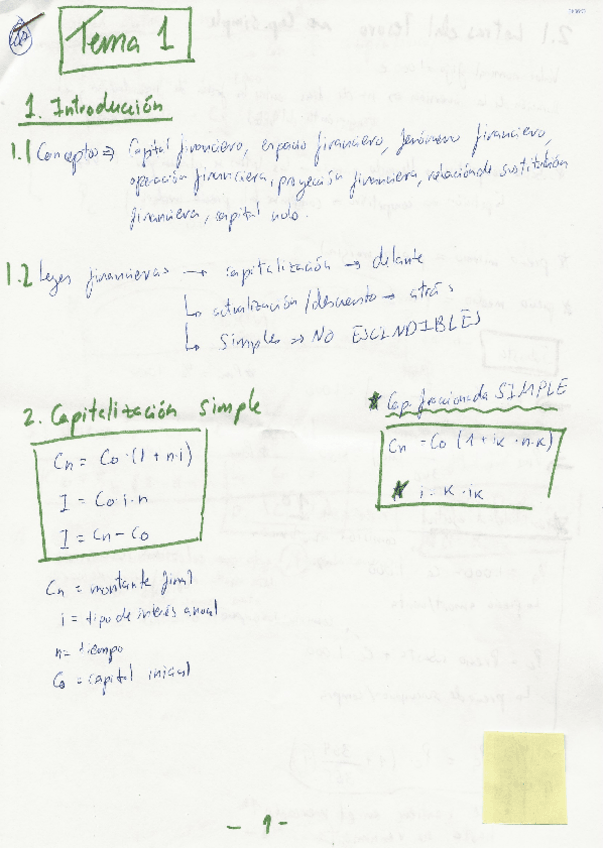 Tema 1
1. Introducción
1.1 Conceptos ⇒ Capital financiero, espacio financiero, fenómeno financiero,
operación financiera, proyección financiera, relación de sustitución
financiera, capital nulo.
1.2 Leyes financieras → capitalización → delante
↳ actualización/descuento → atrás
↳ Simples ⇒ NO ESCINDIBLES
2. Capitalización simple
Cn = Co·(1+n·i)
I = Co·i·n
I = Cn - Co
* Cap. fraccionada SIMPLE
Cn = Co (1 + ik · n·k)
* i · k · ik
Cn = montante final
i = tipo de interés anual
n = tiempo
Co = capital inicial
- 1 -